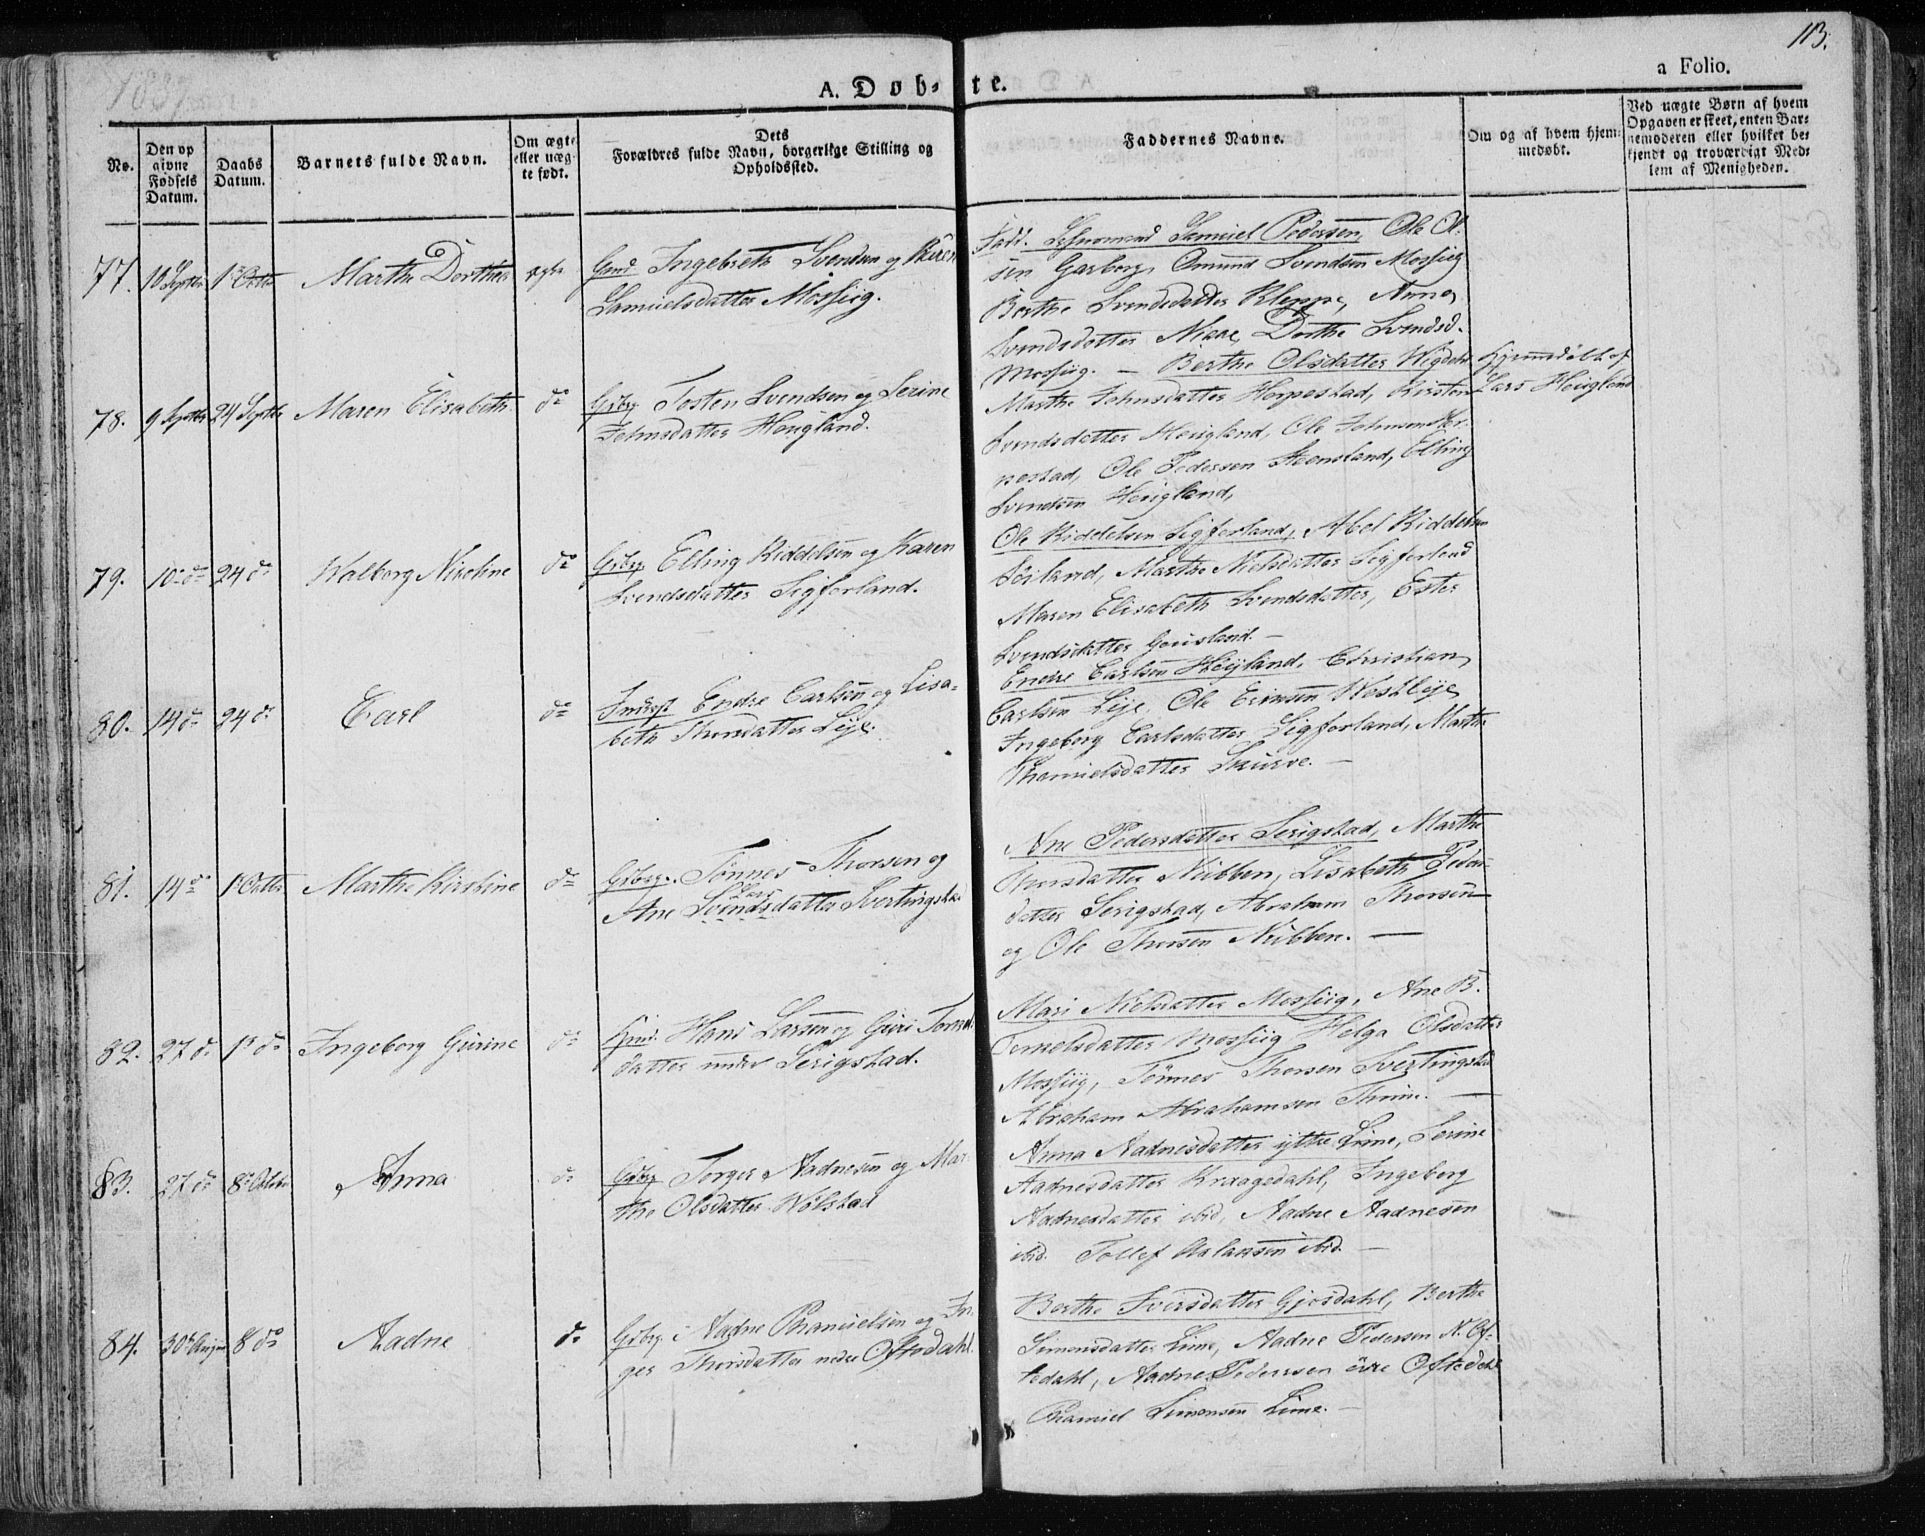 1837
113.
A. Døb-
te.
a Folio.
No.
Den op
givne
Fødsels
Datum.
Daabs
Datum.
Barnets fulde Navn.
Om ægte
eller uæg-
te født.
Dets
Forældres fulde Navn, borgerlige Stilling og
Opholdssted.
Faddernes Navne.
Om og af hvem hjem-
medøbt.
Ved uægte Børn af hvem
Opgaven er skeet, enten Bar-
nemoderen eller hvilket be-
kjendt og troværdigt Med-
lem af Menigheden.
77.
10 Septbr
1ste Octbr
Marthe Dorthea
ægte
Gmd Ingebreth Svendsen og Karen
Samuelsdatter Mossiig.
Fadd. Samuel Pedersen, Ole Ol-
sen Garborg, Omund Svendsen Mossiig
Berthe Svendsdatter Kleppe, Anna
Svendsdatter Dorthe Svendsd.
Mossiig. —
78.
9 Septbr
24 Septbr
Maren Elisabeth
do
Grbrg Tosten Svendsen og Serine
Johnsdatter Houglånd.
Berthe Olsdatter Wigdehl
Marthe Johnsdatter Horpestad, Kirsten
Svendsdatter Hougland, Ole Johnsen Hor-
pestad, Ole Pedersen Steensland, Elling
Svendsen Hougland,
Hjemmedøbt af
Lars Hougland
79.
10 do
24 do
Walborg Nicoline
do
Grbrg Elling Riddelsen og Karen
Svendsdatter Sigferland.
Ole Riddelsen Sigferland, Abel Riddelsen
Søiland, Marthe Nielsdatter Sigferland
Maren Elisabeth Svendsdatter, Ester
Svendsdatter Gruusland. —
80.
14 do
24 do
Carl
do
Indrst Endre Carlsen og Lisa-
beth Thorsdatter Lye.
Endre Carlsen Høyland, Christian
Carlsen Lye, Ole Ericsen Westlye
Ingeborg Carlsdatter Sigferland, Marthe
Thamielsdatter Skurve. —
81.
14 do
1ste Octbr
Marthe Kirstine
do
Grbrg. Tønnes Thorsen og
Lars
Ane Svendsdatter Svertingstad
Ane Pedersdatter Serigstad, Marthe
Thorsdatter Nubben, Lisabeth Peders-
datter Serigstad, Abraham Thorsen
og Ole Thorsen Nubben. —
82.
27 do
1ste do
Ingeborg Gurine
do
Hmd. Hans Larsen og Guri Tormels-
datter under Serigstad.
Mari Nielsdatter Mossiig, Ane B.
Tormelsdatter Mossiig Helga Olsdatter
Mossiig, Tønnes Thorsen Svertingstad
Abraham Abrahamsen Thiime. —
83.
27 do
8 October
Anna
do
Grbrg Torger Aadnesen og Mar-
the Olsdatter Wølstad
Anna Aadnesdatter yttre Lime, Serine
Aadnesdatter Kraagedahl, Ingeborg
Aadnesdatter ibid, Aadne Aadnesen
ibid. Tollef Aslaksen ibid. —
84.
30te August
8 do
Aadne
do
Grbrg. i Aadne Thamielsen og In-
ger Thorsdatter nedre Oftedahl.
Berthe Sversdatter Gjosdahl, Berthe
Simonsdatter Lime, Aadne Pedersen N. Of-
tedahl, Aadne Pedersen øvre Oftedahl
Thamiel Simonsen Lime. —